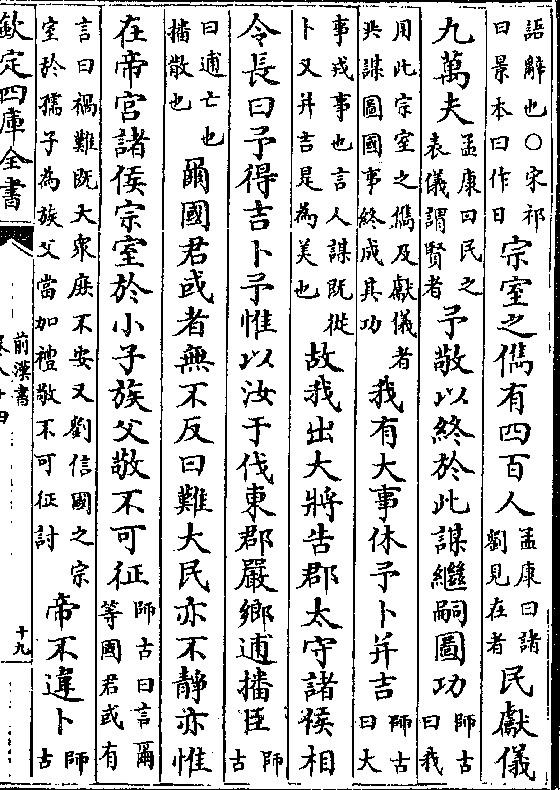 語辭也○宋祁
曰景本曰作日
宗室之儁有四百人
孟康曰諸
劉見在者
民獻儀
九萬夫
孟康曰民之
表儀謂賢者
予敬以終於此謀繼嗣圖功
師古
曰我
用此宗室之儁及獻儀者
共謀圖國事終成其功
我有大事休予卜并吉
師古
曰大
事戎事也言人謀既從
卜又并吉是為美也
故我出大將告郡太守諸侯相
令長曰予得吉卜予惟以汝于伐東郡嚴鄉逋播臣
師
古
曰逋亡也
播散也
爾國君或者無不反曰難大民亦不靜亦惟
在帝宫諸侯宗室於小子族父敬不可征
師古曰言爾
等國君或有
言曰禍難既大衆庶不安又劉信國之宗
室於孺子為族父當加禮敬不可征討
帝不違卜
師
古
欽定四庫全書
前漢書
卷八十四
十九